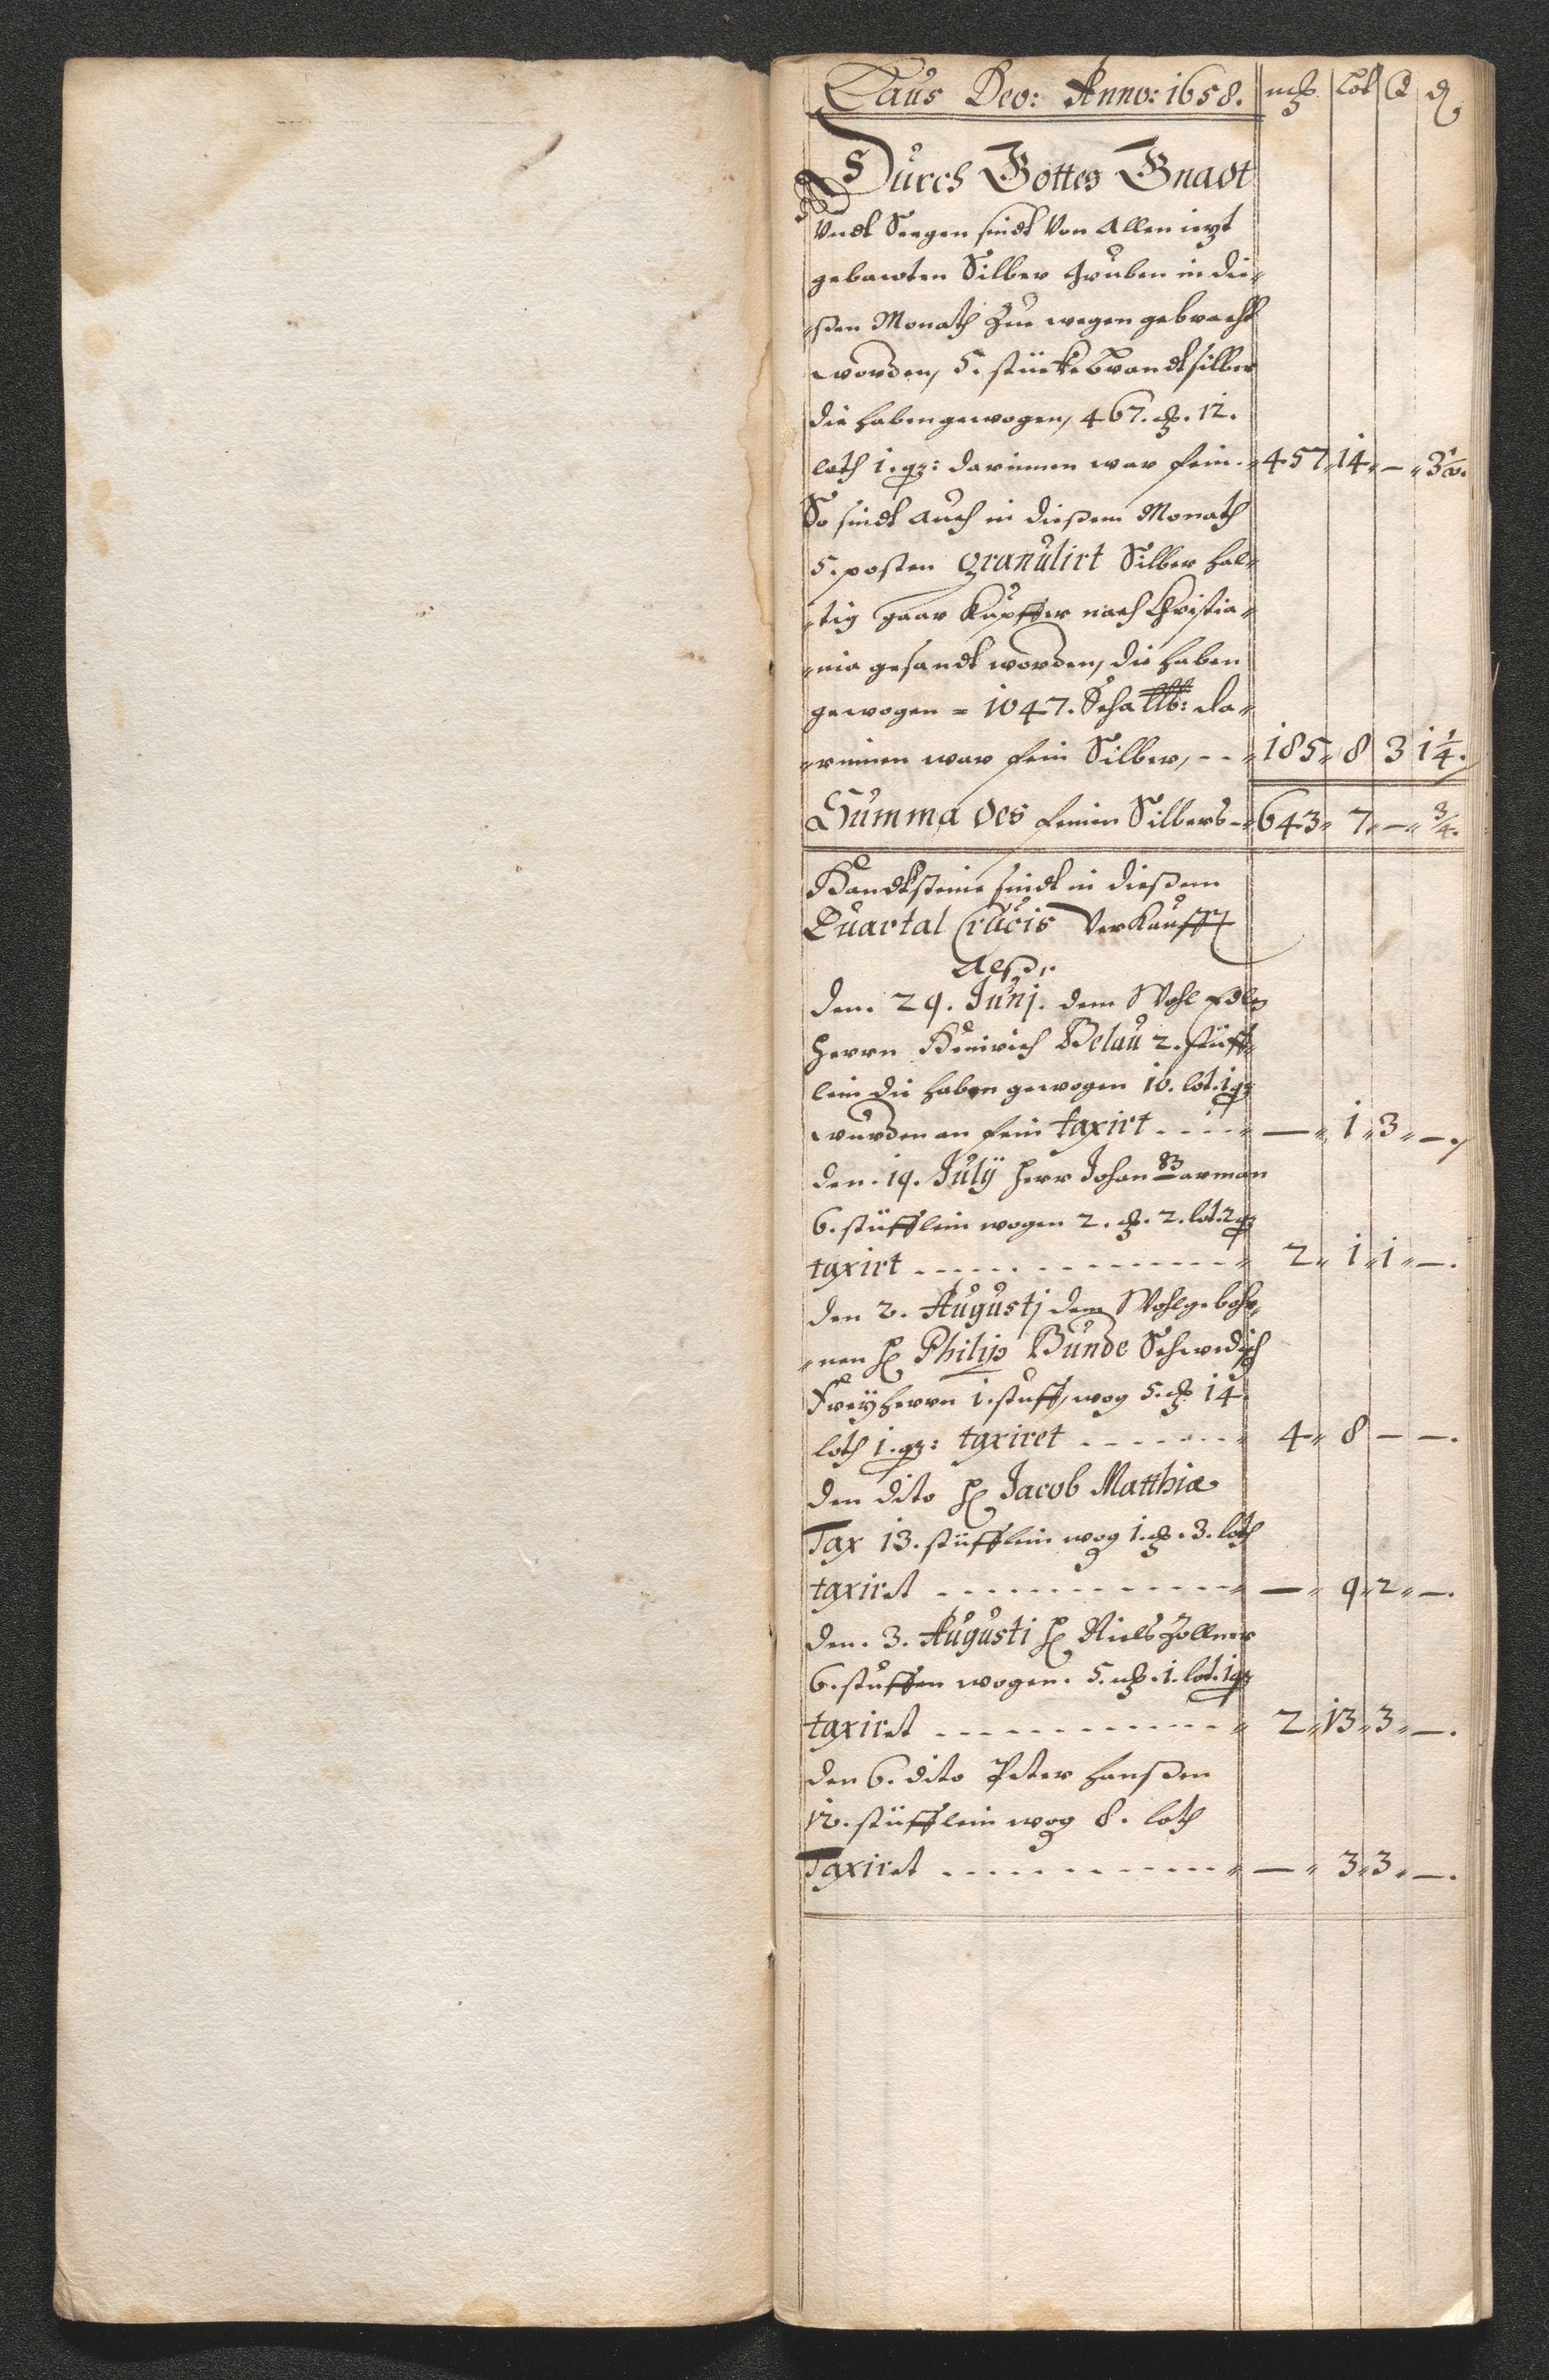 Laus Deo: Anno: 1658. mk lot Q ₰
Durch Gottes Gnadt
Undt Seegen sindt Von Allen ietzt
gebawten Silber Gruben in die⸗
⸗ßen Monath Zue wegen gebracht
worden, 5. stücke brandtsilber
die haben gewogen, 467. mk. 12.
loth 1. qz: darinnen war fein. 457 14 — 3 1/2.
So sindt auch in dießem Monath
5. posten granulirt Silber hal⸗
⸗tig gaar Kupffer nach Christia⸗
⸗nia gesandt worden, die haben
gewogen = 1047. Scha ℔: da⸗
⸗rinnen war fein Silber, 185 8 3 1 1/4.
Summa des feinen Silbers 643 7 — 3/4.
Handtsteine sindt in dießem
Quartal Crucis Verkaufft
Alß.
den. 29. Junj. dem Wohl Edlen
Herrn Heinrich Belau 2. stüff⸗
lein die haben gewogen 10. lot. 1 qz
wurden an fein taxirt — 1 3 —
den. 19. July Herr Johan arman
6. stüfflein wogen 2. mk. 2. lot. 2 qz
taxirt 2 1 1 —.
den 2. Augustj dem Wohlgeboh⸗
⸗nen H Philip Bunde Schwedisch
Freyherrn 1. stuff, wog 5. mk 14.
loth 1. qz: taxiret 4 8 — —.
den dito H Jacob Matthiæ
Tax 13. stüfflein wog 1. mk. 3. loth
taxiret — 9 2 —.
den. 3. Augusti H Niels Zollner
6. stuffen wogen. 5. mk. 1. lot. 1 qz
taxiret 2 13 3 —.
den 6. dito Peter Hanßen
12. stüfflein wog 8. loth
Taxiret — 3 3 —.